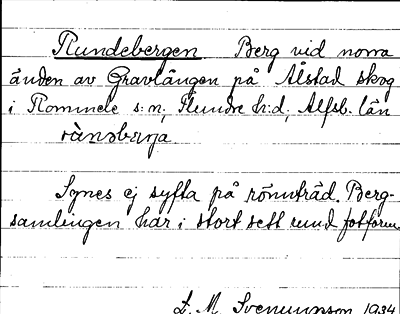 Rundebergen Berg vid norra
änden av Gravlången på Ålstad skog
i Rommele s:n, Flundre h:d, Älfsb. län
Synes ej syfta på rönnträd. Berg-
samlingen har i stort sett rund fotform.
L. M. Svenungsson 1934